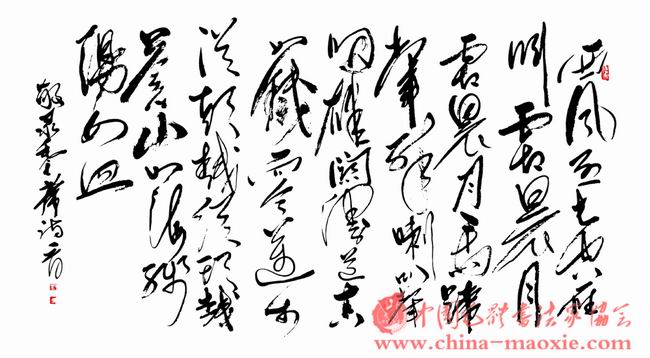 西风烈长空雁
叫霜晨月
霜晨月马蹄
声碎喇叭声
咽雄关漫道真
如鐵而今迈步
從頭越從頭越
蒼山如海残
陽如血
敬录毛主席诗
中国毛体书法家协会
www.china-maoxie.com